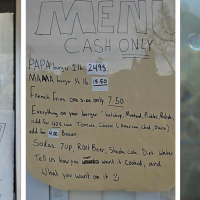 MENU
CASH ONLY
PAPA burger 1 lb 24.95
MAMA burger ½ lb 15.50
French Fries one size only 7.50
Everything on your burger ketchup, Mustard, Pickles Relish
add for Tomato, Cheese
add for 4.00 Bacon
Sodas. 7up, Root Beer, Shasta Cola Diet Water
Tell us how you want it Cooked, and
What you want on it